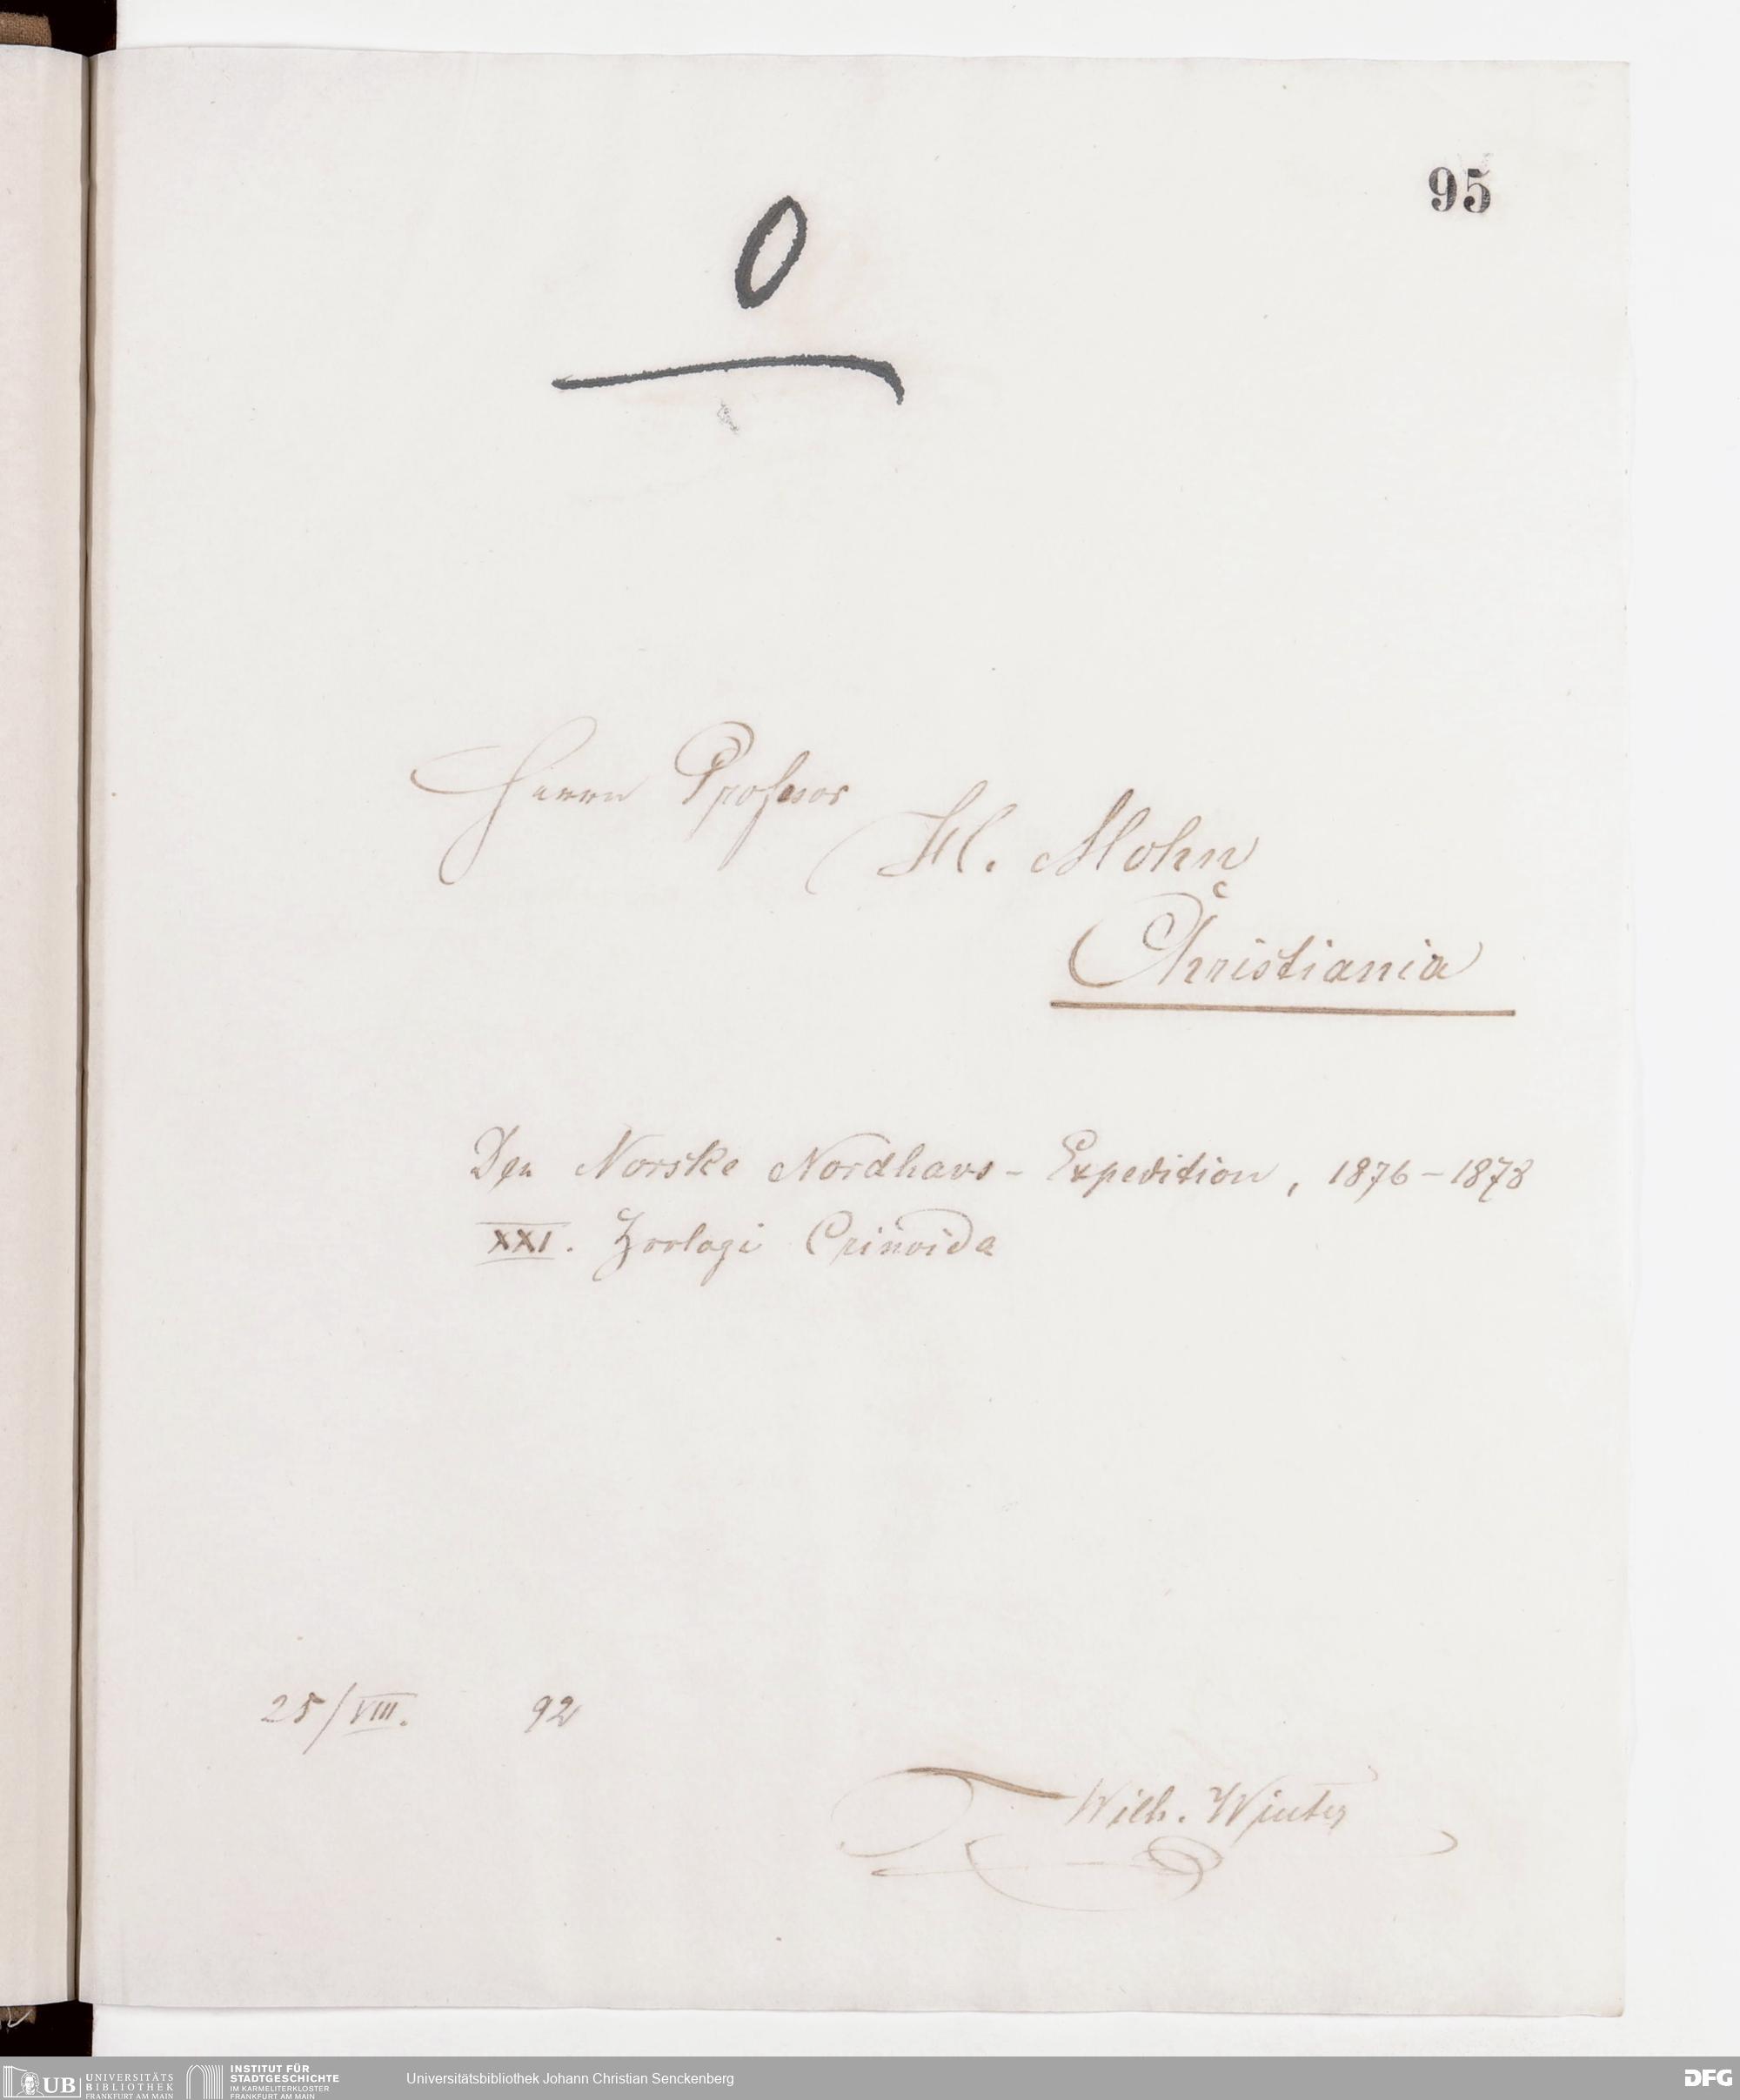 95
0
Herrn Professor
H. Mohn
Christiania
Den Norske Nordhavs-Expedition, 1876-1878
XXI. Zoologi Crinoida
25/VIII. 92
Wilh. Winter
UB UNIVERSITÄTS BIBLIOTHEK FRANKFURT AM MAIN
INSTITUT FÜR STADTGESCHICHTE IM KARMELITERKLOSTER FRANKFURT AM MAIN
Universitätsbibliothek Johann Christian Senckenberg
DFG